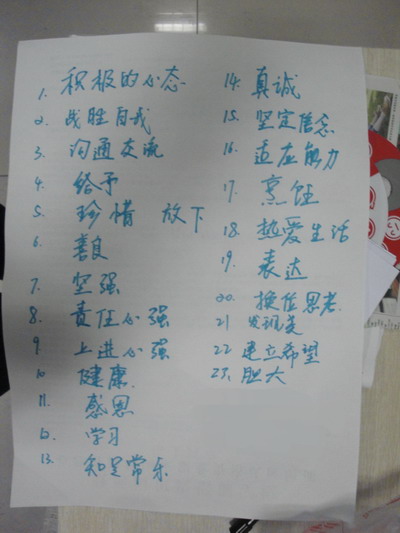 1. 积极的心态
2. 战胜自我
3. 沟通交流
4. 给予
5. 珍惜 放下
6. 善良
7. 坚强
8. 责任心强
9. 上进心强
10 健康
11. 感恩
12. 学习
13. 知足常乐
14. 真诚
15. 坚定信念
16. 适应能力
17. 烹饪
18. 热爱生活
19. 表达
20. 换位思考
21 发现美
22 建立希望
23. 胆大